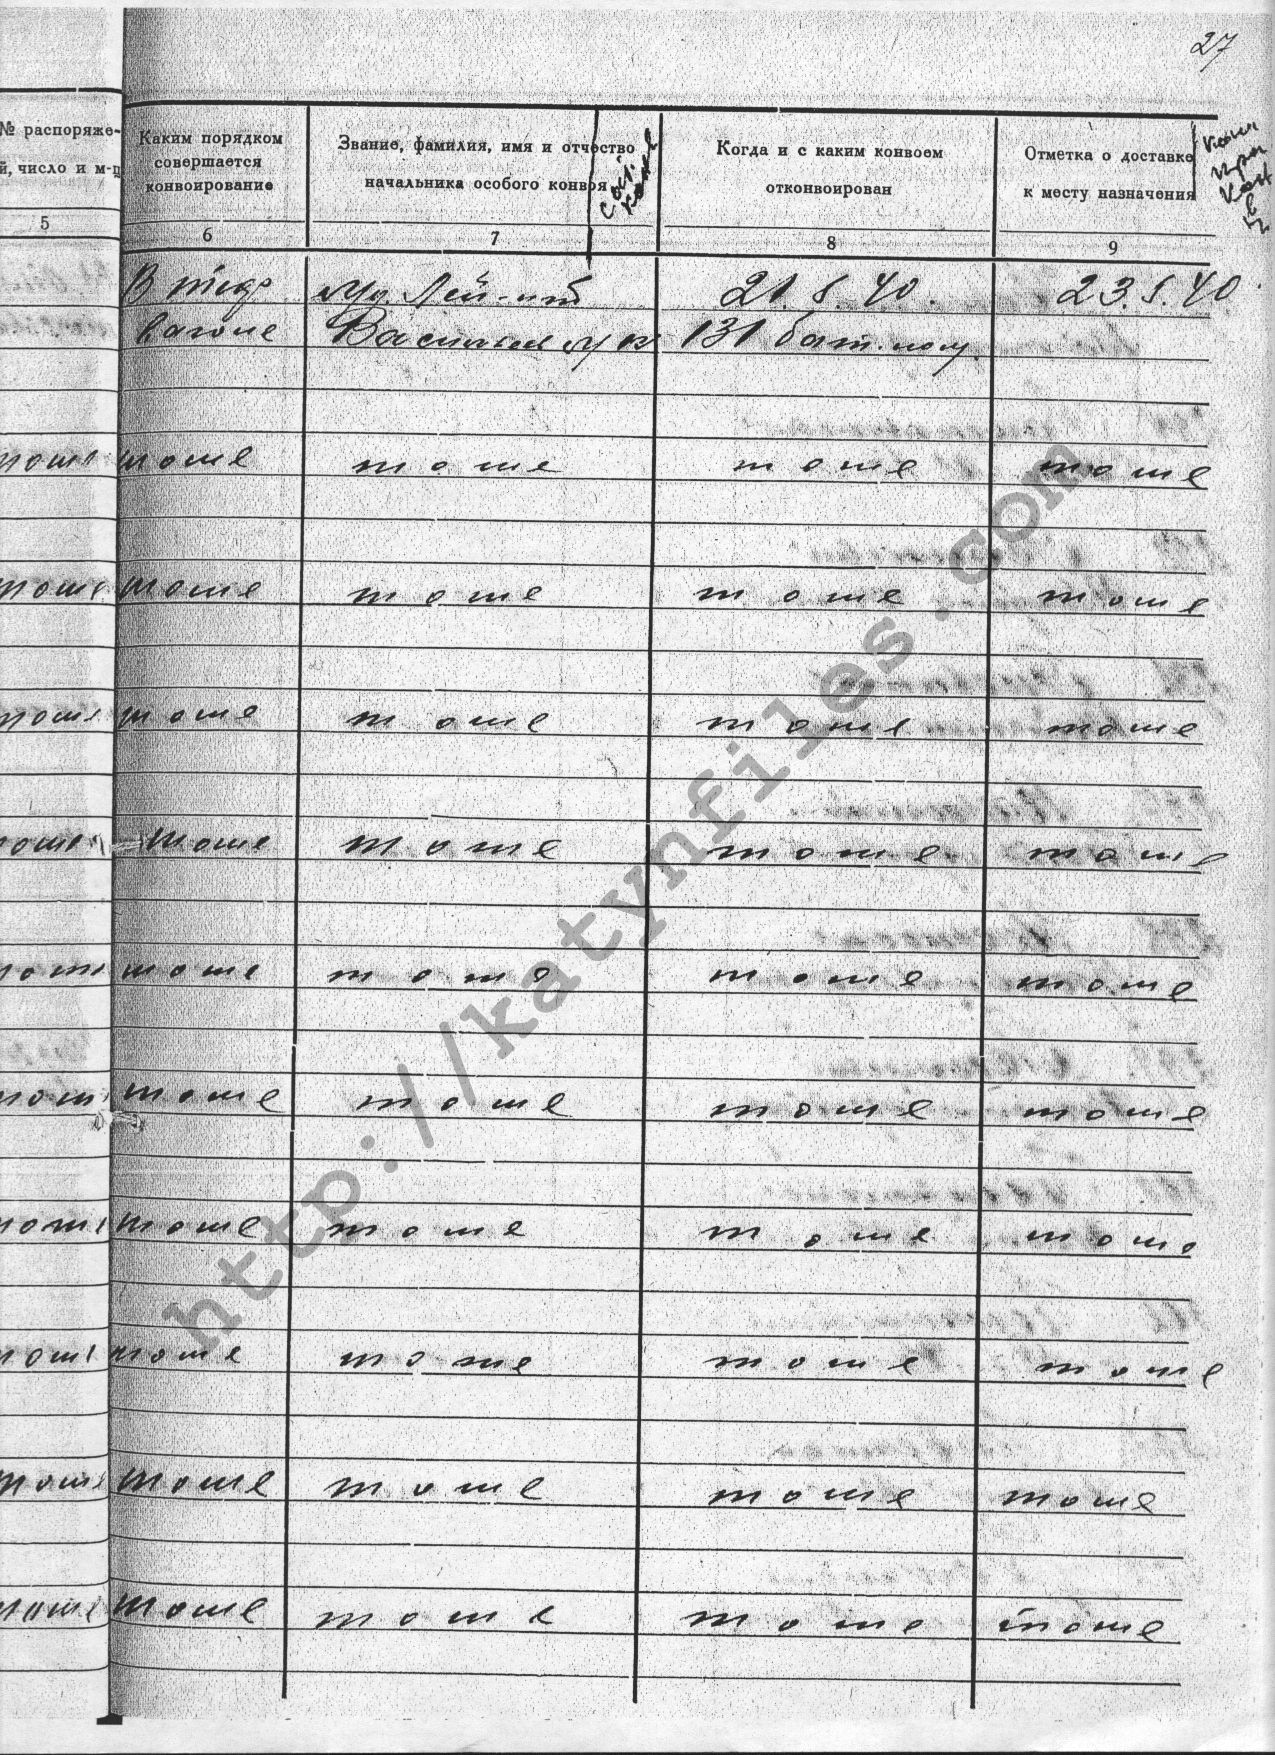 27
№ распоряже-
й, число и м-ц
5
Каким порядком
совершается
конвоирование
6
Звание, фамилия, имя и отчество
начальника особого конвоя
7
Когда и с каким конвоем
отконвоирован
8
Отметка о доставке
к месту назначения
9
В тюр мл. лей-нт 21.5.40. 23.5.40.
вагоне Васильев 131 бат.
тоже тоже тоже тоже тоже
тоже тоже тоже тоже тоже
тоже тоже тоже тоже тоже
тоже тоже тоже тоже тоже
тоже тоже тоже тоже тоже
тоже тоже тоже тоже тоже
тоже тоже тоже тоже тоже
тоже тоже тоже тоже тоже
тоже тоже тоже тоже тоже
тоже тоже тоже тоже тоже
http://katynfiles.com